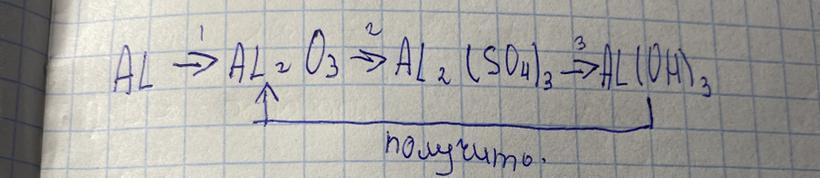 1 2 3
AL → AL₂O₃ → AL₂(SO₄)₃ → AL(OH)₃
получить.